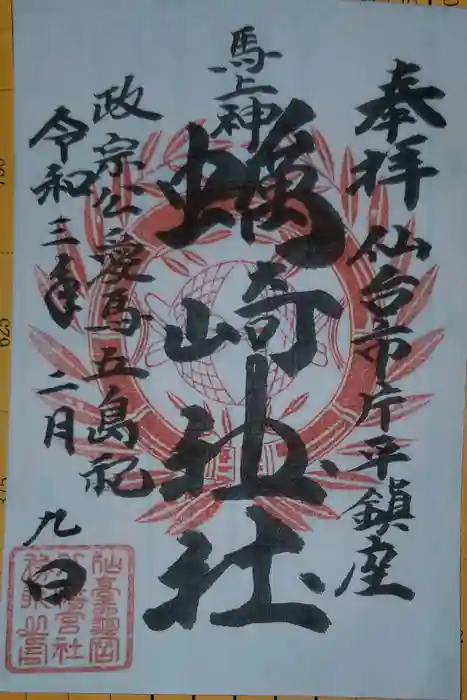 奉拝 仙台市片平鎮座
馬上神
蠣崎神社
政宗公愛馬五島祀
令和三年 二月 九日
仙臺龜岡
八幡宮社
625